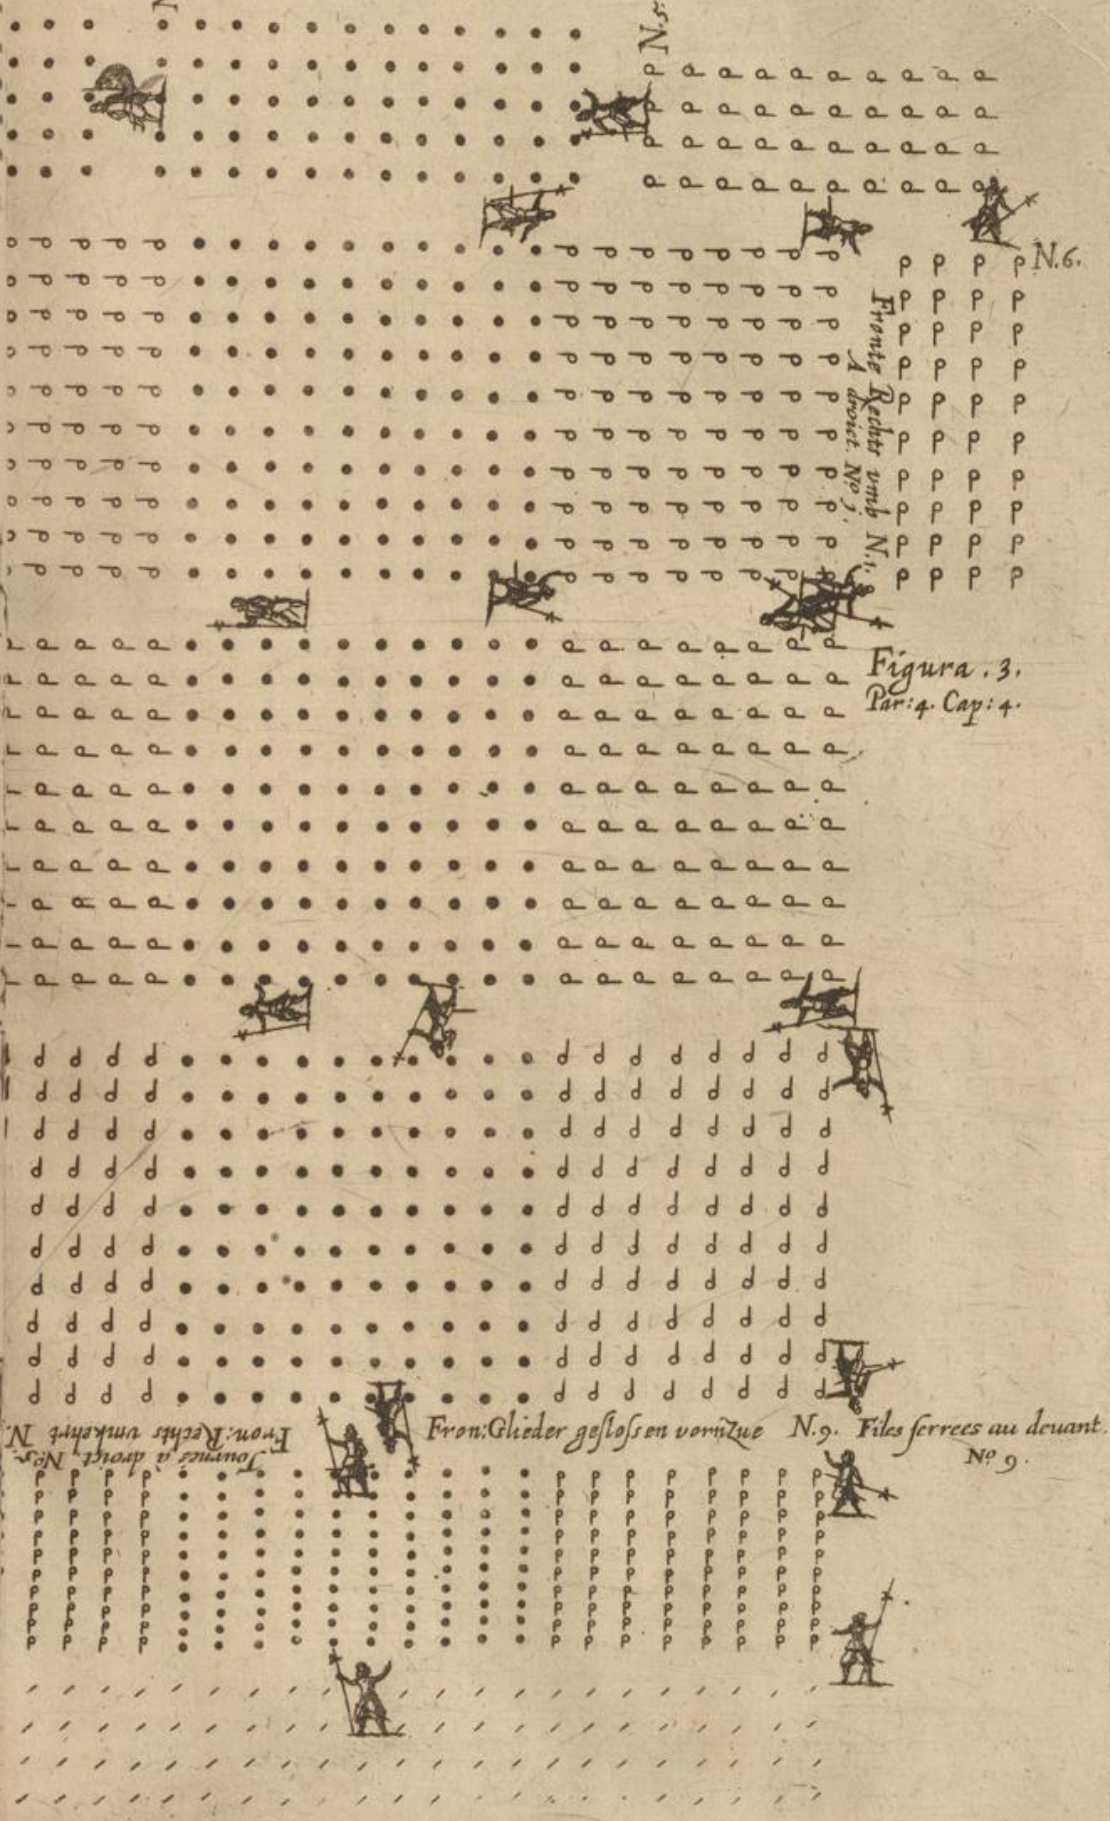 N.5.
N.6.
Fronte Rechts vmb N.1.
A droict. No j.
Figura. 3.
Par: 4. Cap: 4.
Fron: Glieder gesloſsen vornZue N. 9. Files ſerrees au deuant.
No 9.
Fron: Rechts vmkehrt N.
Tournés à droict, No5.